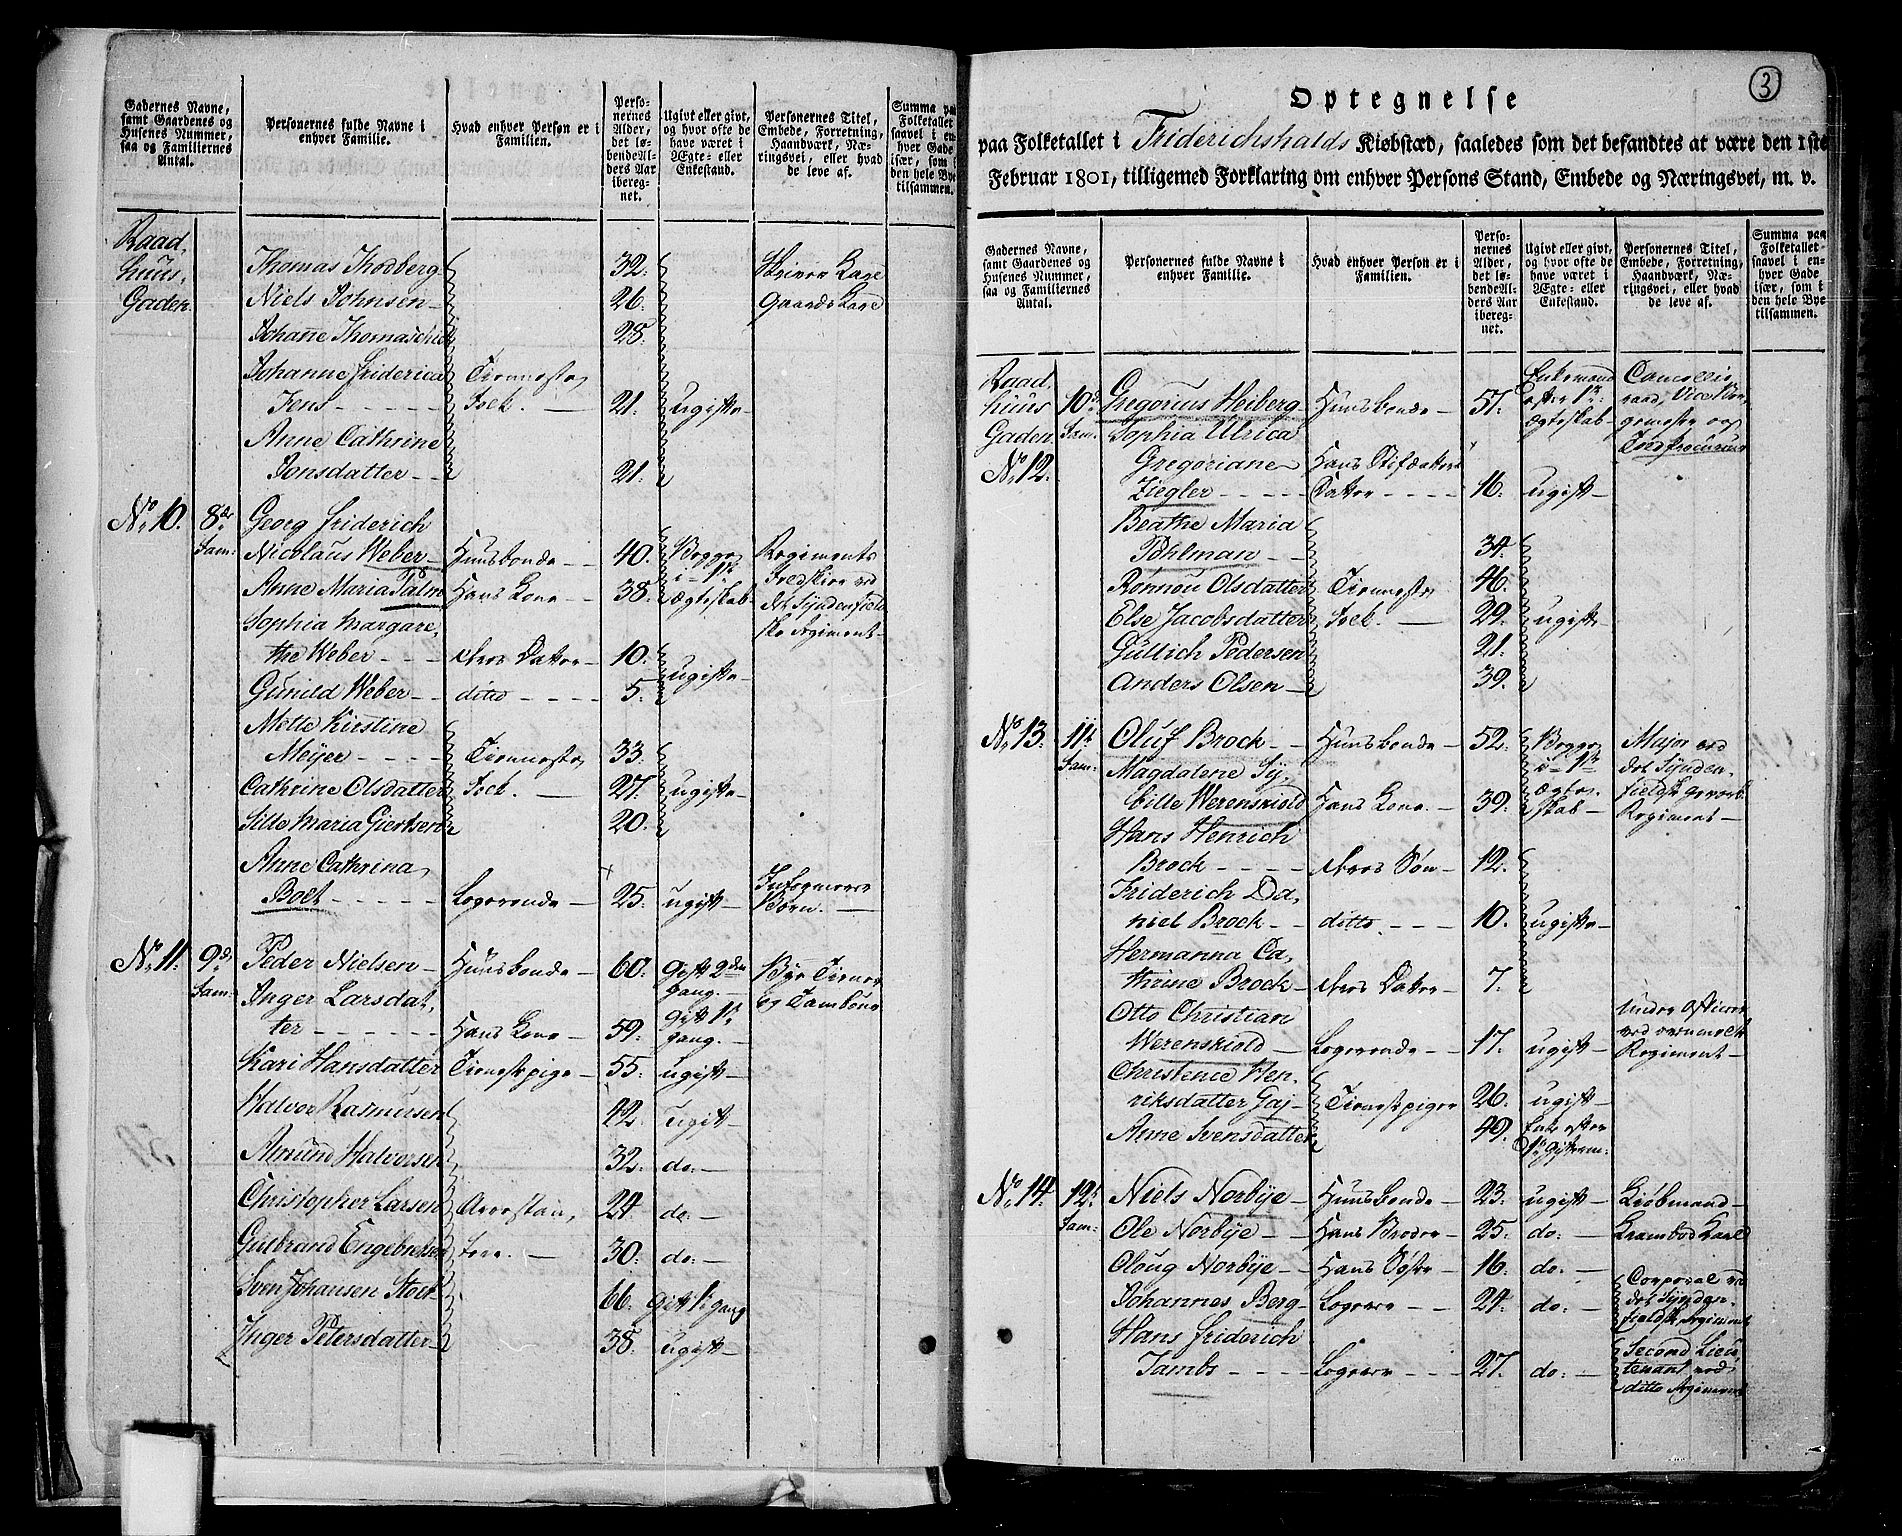 Gadernes Navne, samt Gaardenes og Husenes Nummer, saa og Familiernes Antal.
Personernes fulde Navne i enhver Familie.
Hvad enhver Person er i Familien.
Personernes Alder, det løbende Alders Aar iberegnet.
Ugivt eller givt, og hvor ofte de have været i Ægte- eller Enkestand.
Personernes Titel, Embede, Forretning, Haandværk, Næringsvei, eller hvad de leve af.
Summa paa Folketallet saavel i enhver Gade især, som i den hele Bye tilsammen.
Raad,
huus, Thomas Thodberg 32.
Gaden Niels Johnsen 26. Gaards Karl
Johanne Thomaschid 28.
Johanne Friderica Tienneste
Jens folk. 21. ugifte
Anne Cathrine
Jonsdatter 21.
No. 10. 8de Georg Friderich
Fam: Nicolaus Weber Huusbonde 40. Begge Regiments
Anne Maria Palm Hans Kone 38. i 1ste Ægteskab Feldskier ved
Sophia Margare, det Syndenfield
the Weber deres Datter 10. ske Regiment
Gunild Weber ditto 5. ugifte
Mette Kirstine
Meyer Tienneste 33.
Cathrine Olsdatter Folk. 27. ugifte
Sille Maria Giertsen 20.
Anne Cathrina
Boet Logerende 25. ugift Informerer Børn.
No. 11. 9de Peder Nielsen Huusbonde 60. gift 2den gang. Bye Tiener
Fam: Inger Larsdat, og Tambour
ter Hans Kone 59. gift 1ste gang.
Kari Hansdatter Tienestepige 55. ugift
Halvor Rasmusen 42. ugift
Amund Halvorsen 32. do:
Christopher Larsen Arrestan, 24. do:
Gulbrand Engebretsen tere. 30. do:
Sven Johansen Stoet 66. gift 1ste gang
Inger Petersdatter 38. ugift
3
Optegnelse
paa Folketallet i Friderichshalds Kiøbstæd, saaledes som det befandtes at være den 1ste
Februar 1801, tilligemed Forklaring om enhver Persons Stand, Embede og Næringsvei, m. v.
Gadernes Navne, samt Gaardenes og Husenes Nummer, saa og Familiernes Antal.
Personernes fulde Navne i enhver Familie.
Hvad enhver Person er i Familien.
Personernes Alder, det løbende Alders Aar iberegnet.
Ugivt eller givt, og hvor ofte de have været i Ægte- eller Enkestand.
Personernes Titel, Embede, Forretning, Haandværk, Næringsvei, eller hvad de leve af.
Summa paa Folketallet saavel i enhver Gade især, som i den hele Bye tilsammen.
Raad, Enkemand Cancellie
huus 10de Gregorius Heiberg Huusbonde 57. efter 1ste raad, Vice Bor
Gaden Fam: Sophia Ulrica Ægteskab germester og
No. 12. Gregoriane Hans Stifdatters
Ziegler Datter 16. ugift
Beathe Maria
Pohlman 34.
Rønnou Olsdatter Tienneste 46.
Else Jacobsdatter Folk. 29. ugifte
Gullich Pedersen 21.
Anders Olsen 39.
No. 13. 11te Oluf Brock Huusbonde 52. Begge Major ved
Fam: Magdalene Sy, i 1ste det Synden
bille Werenskiold Hans Kone 39. Ægteskab fieldske Regiment
Hans Henrich
Brock deres Søn 12.
Friderich Da,
niel Brock ditto 10. ugifte
Hermanna Ca,
thrine Brock deres Datter 7.
Otto Christian Under Officeer
Werenskiold Logerende 17. ugift Regiment
Christence Hen,
riksdatter Gaj Tienestepiger 26. ugift
Anne Svensdatter 49. Enke efter
No. 14. 12te Niels Norbye Huusbonde 23. ugift Kiøbmand
Fam: Ole Norbye Hans Broder 25. do: Krambod Karl
Oloug Norbye Hans Søster 16. do:
Johannes Berg Logerer 24. do: Corporal ved det Syndenfieldske Regiment
Hans Friderich
Jambs Logerer 27. do: Second Lieutenant ved ditto Regiment